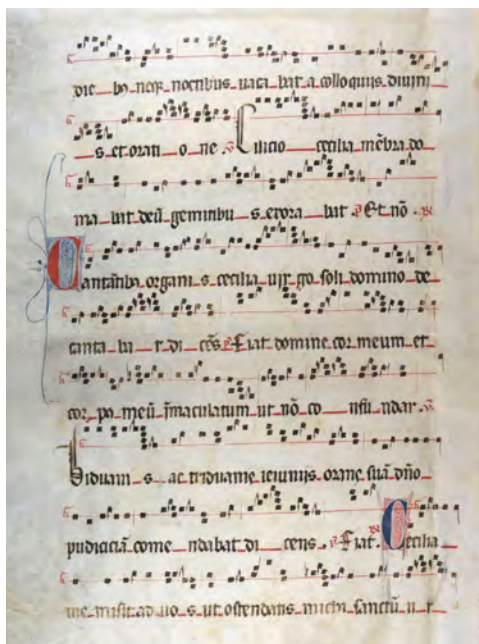 die bu neq noctibus vaca bat a colloquiis diuini
s et orati o ne. V Cilicio cecilia mēbra do
ma bat deū gemitibu s exora bat. P Et nō.
Cantātibꝫ organi s cecilia uir go soli domino de
canta ba t di cēs P Fiat domine cor meum et
cor pꝰ meū īmaculatum ut nō co nfu ndar. V
Biduani s ac triduanis ieiuniis orans suā dño
pudiciciā come ndabat di cens. P Fiat. Cecilia
me misit ad uo s ut ostendatis michi sanctū u r